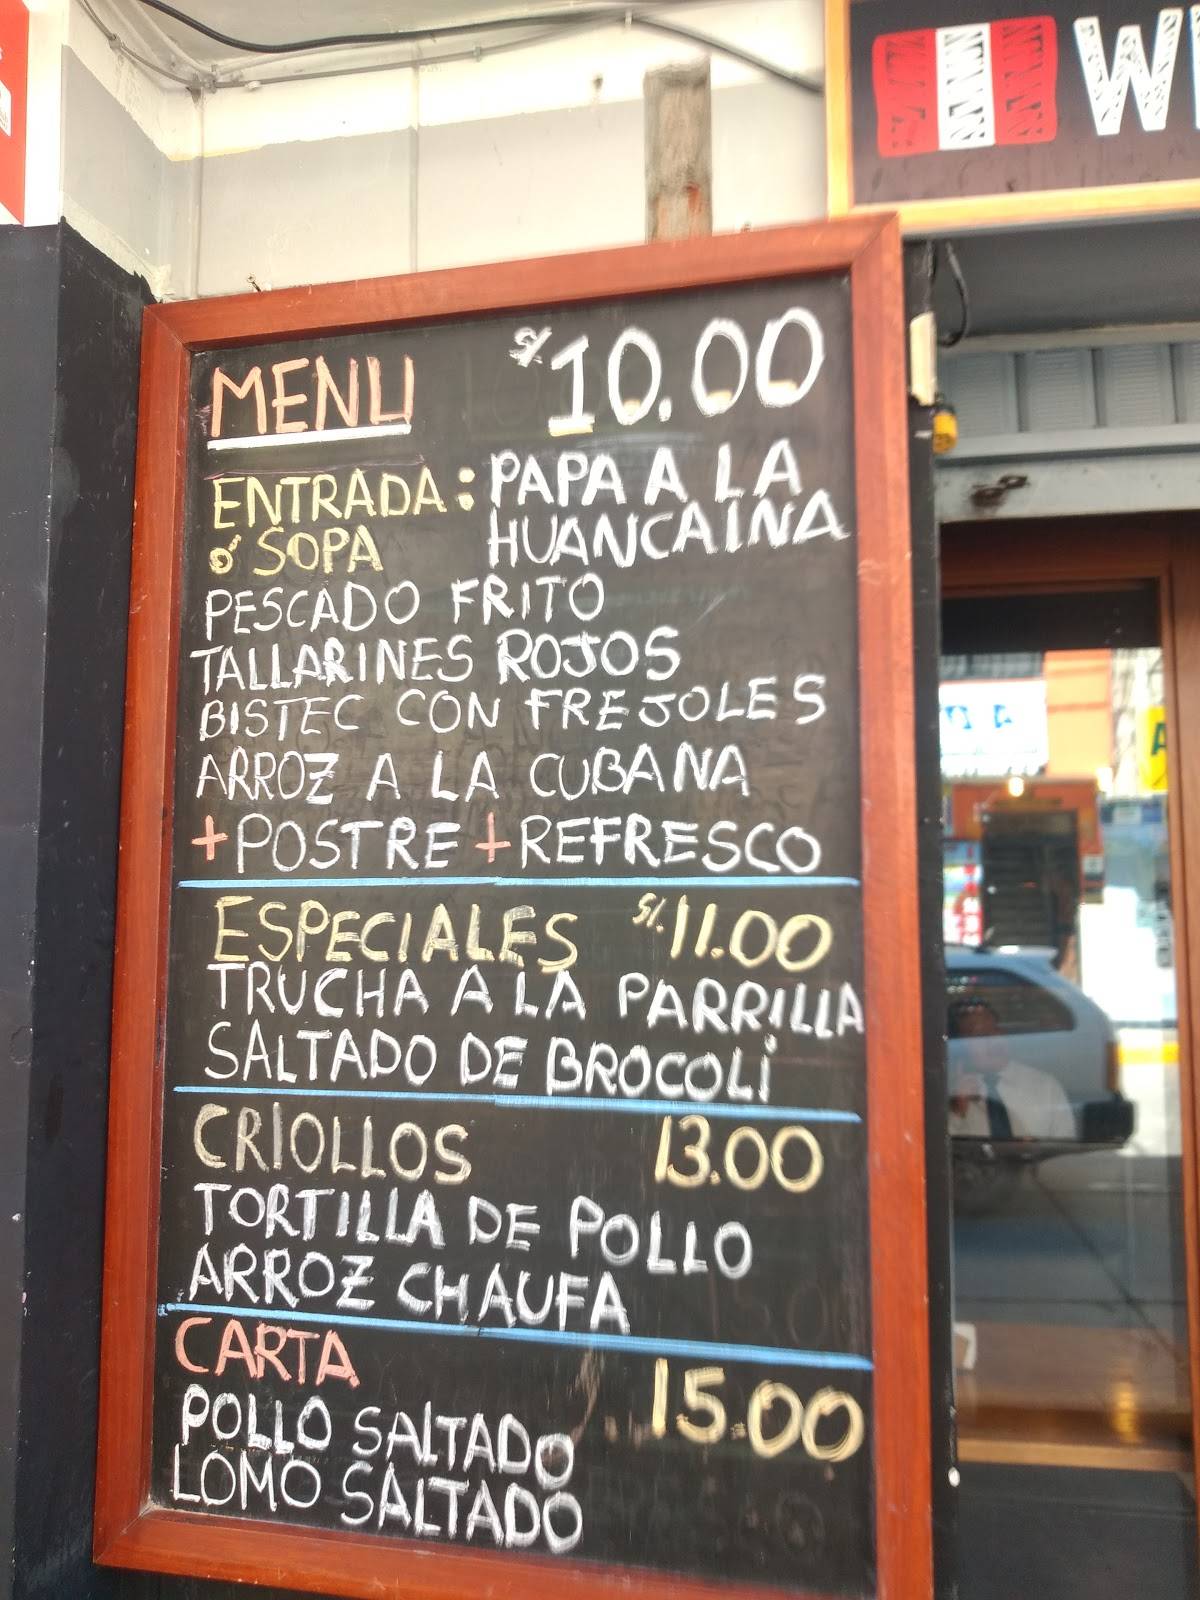 MENU S/ 10.00
ENTRADA: PAPA A LA
ó SOPA HUANCAINA
PESCADO FRITO
TALLARINES ROJOS
BISTEC CON FREJOLES
ARROZ A LA CUBANA
+POSTRE +REFRESCO
ESPECIALES S/.11.00
TRUCHA A LA PARRILLA
SALTADO DE BROCOLI
CRIOLLOS 13.00
TORTILLA DE POLLO
ARROZ CHAUFA
CARTA 15.00
POLLO SALTADO
LOMO SALTADO